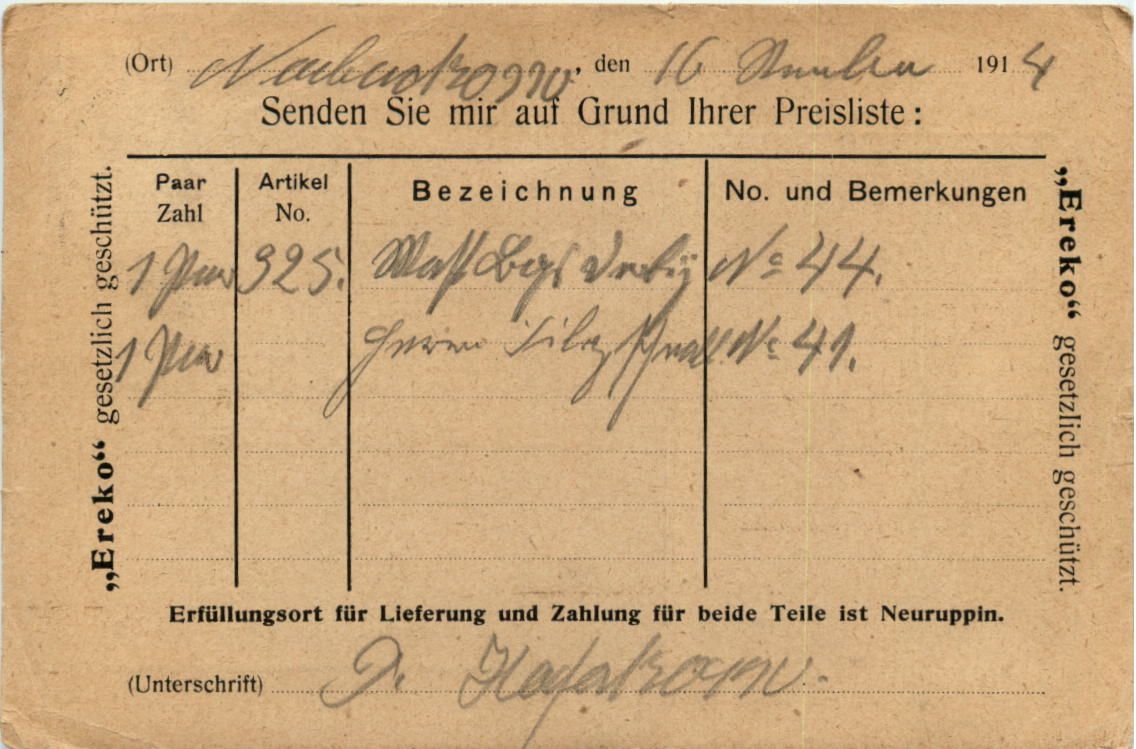 (Ort) , den 16 1914
Senden Sie mir auf Grund Ihrer Preisliste:
Paar Zahl Artikel No. Bezeichnung No. und Bemerkungen
1 Paar 325. Derby No 44.
1 Paar Herren No 41.
Erfüllungsort für Lieferung und Zahlung für beide Teile ist Neuruppin.
(Unterschrift)
„Ereko“ gesetzlich geschützt.
„Ereko“ gesetzlich geschützt.